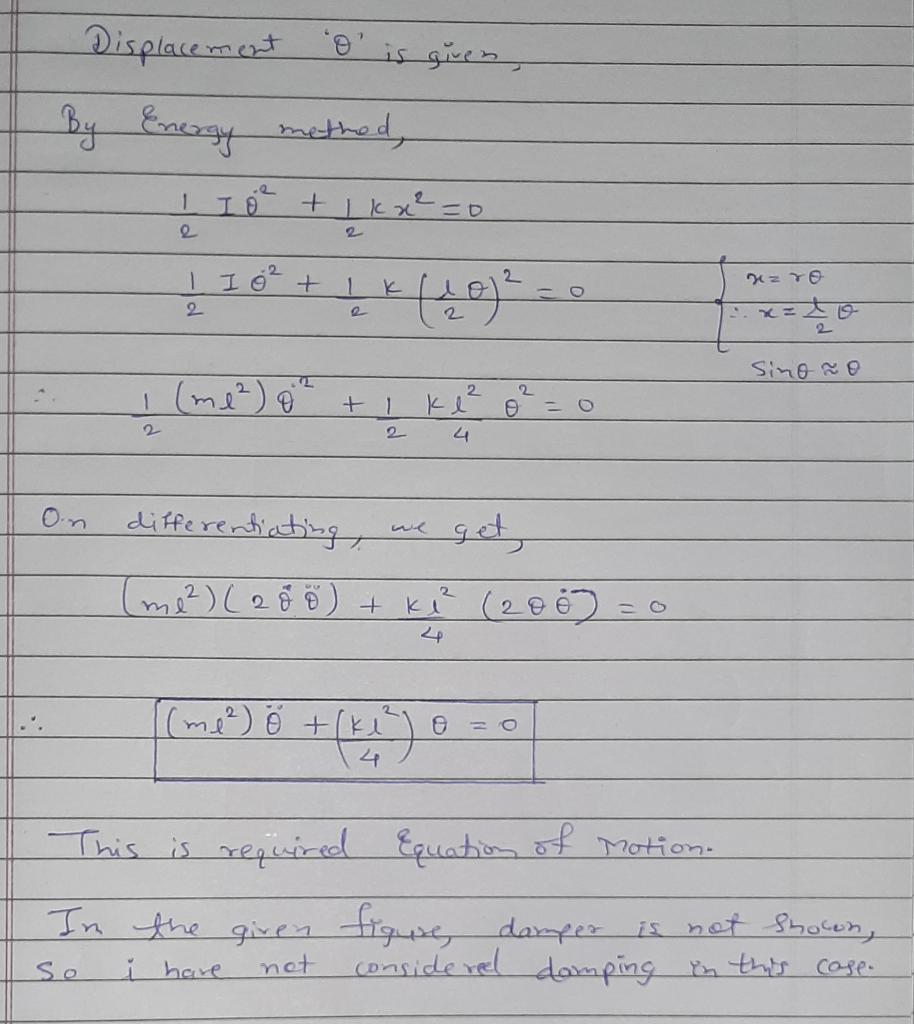 Displacement 'θ' is given,
By Energy method,
1/2 I θ̇² + 1/2 k x² = 0
1/2 I θ̇² + 1/2 k (l/2 θ)² = 0
{ x = rθ
∴ x = l/2 θ
sinθ ≈ θ
∴ 1/2 (ml²) θ̇² + 1/2 kl²/4 θ² = 0
On differentiating, we get,
(ml²) (2 θ̇ θ̈) + kl²/4 (2θ θ̇) = 0
∴ (ml²) θ̈ + (kl²/4) θ = 0
This is required Equation of Motion.
In the given figure, damper is not shown,
so i have not considered damping in this case.